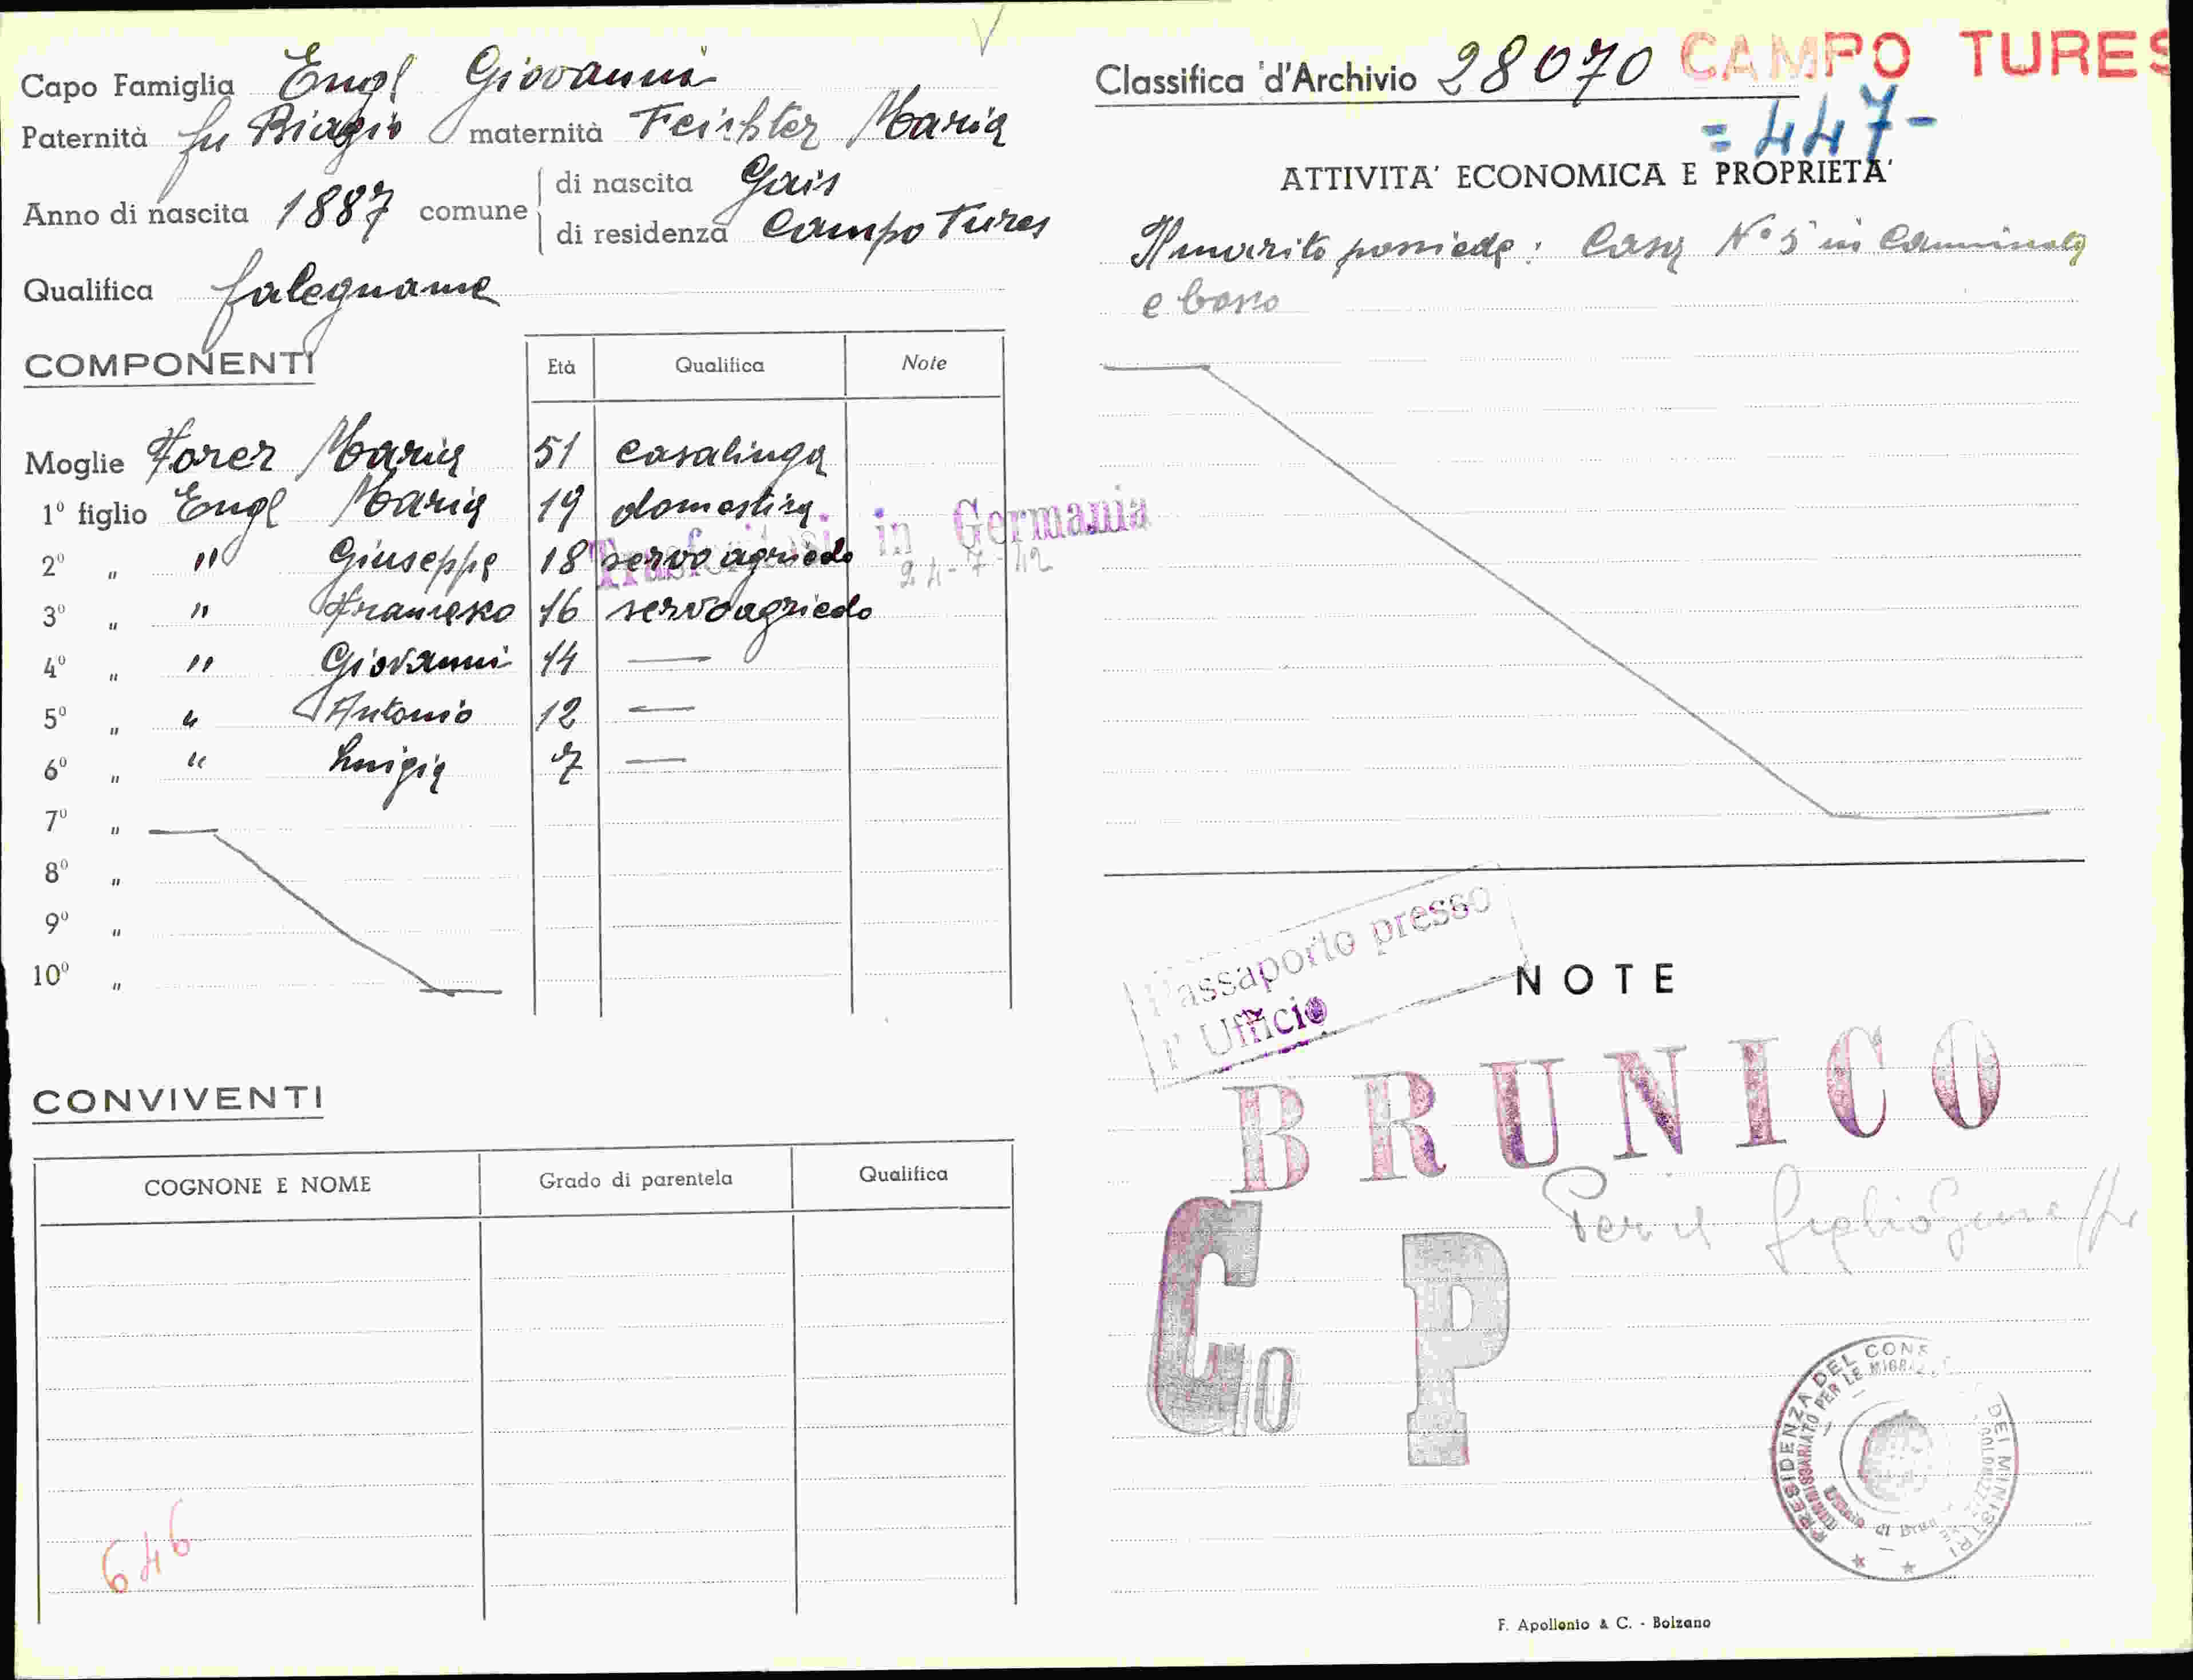 Capo Famiglia Engl Giovanni
Paternità fu Biagio maternità Feichter Maria
Anno di nascita 1887 comune di nascita Gais
di residenza Campo Tures
Qualifica falegname
COMPONENTI Età Qualifica Note
Moglie Forer Maria 51 casalinga
1º figlio Engl Maria 19 domestica
2º " " Giuseppe 18 servo agricolo
Trasferitosi in Germania
24-7-42
3º " " Francesco 16 servo agricolo
4º " " Giovanni 14 —
5º " " Antonio 12 —
6º " " Luigia 7 —
7º "
8º "
9º "
10º "
CONVIVENTI
COGNONE E NOME Grado di parentela Qualifica
646
Classifica d'Archivio 28070 CAMPO TURES
= 447 -
ATTIVITA' ECONOMICA E PROPRIETA'
Il marito possiede: Casa Nº 5 in Caminata
e bosco
Passaporto presso
l' Ufficio
NOTE
BRUNICO
Per il figlio Giuseppe
Gio P
PRESIDENZA DEL CONS DEI MINISTRI
COMMISSARIATO PER LE MIGRA
Ufficio di Brun
F. Apollonio & C. - Bolzano